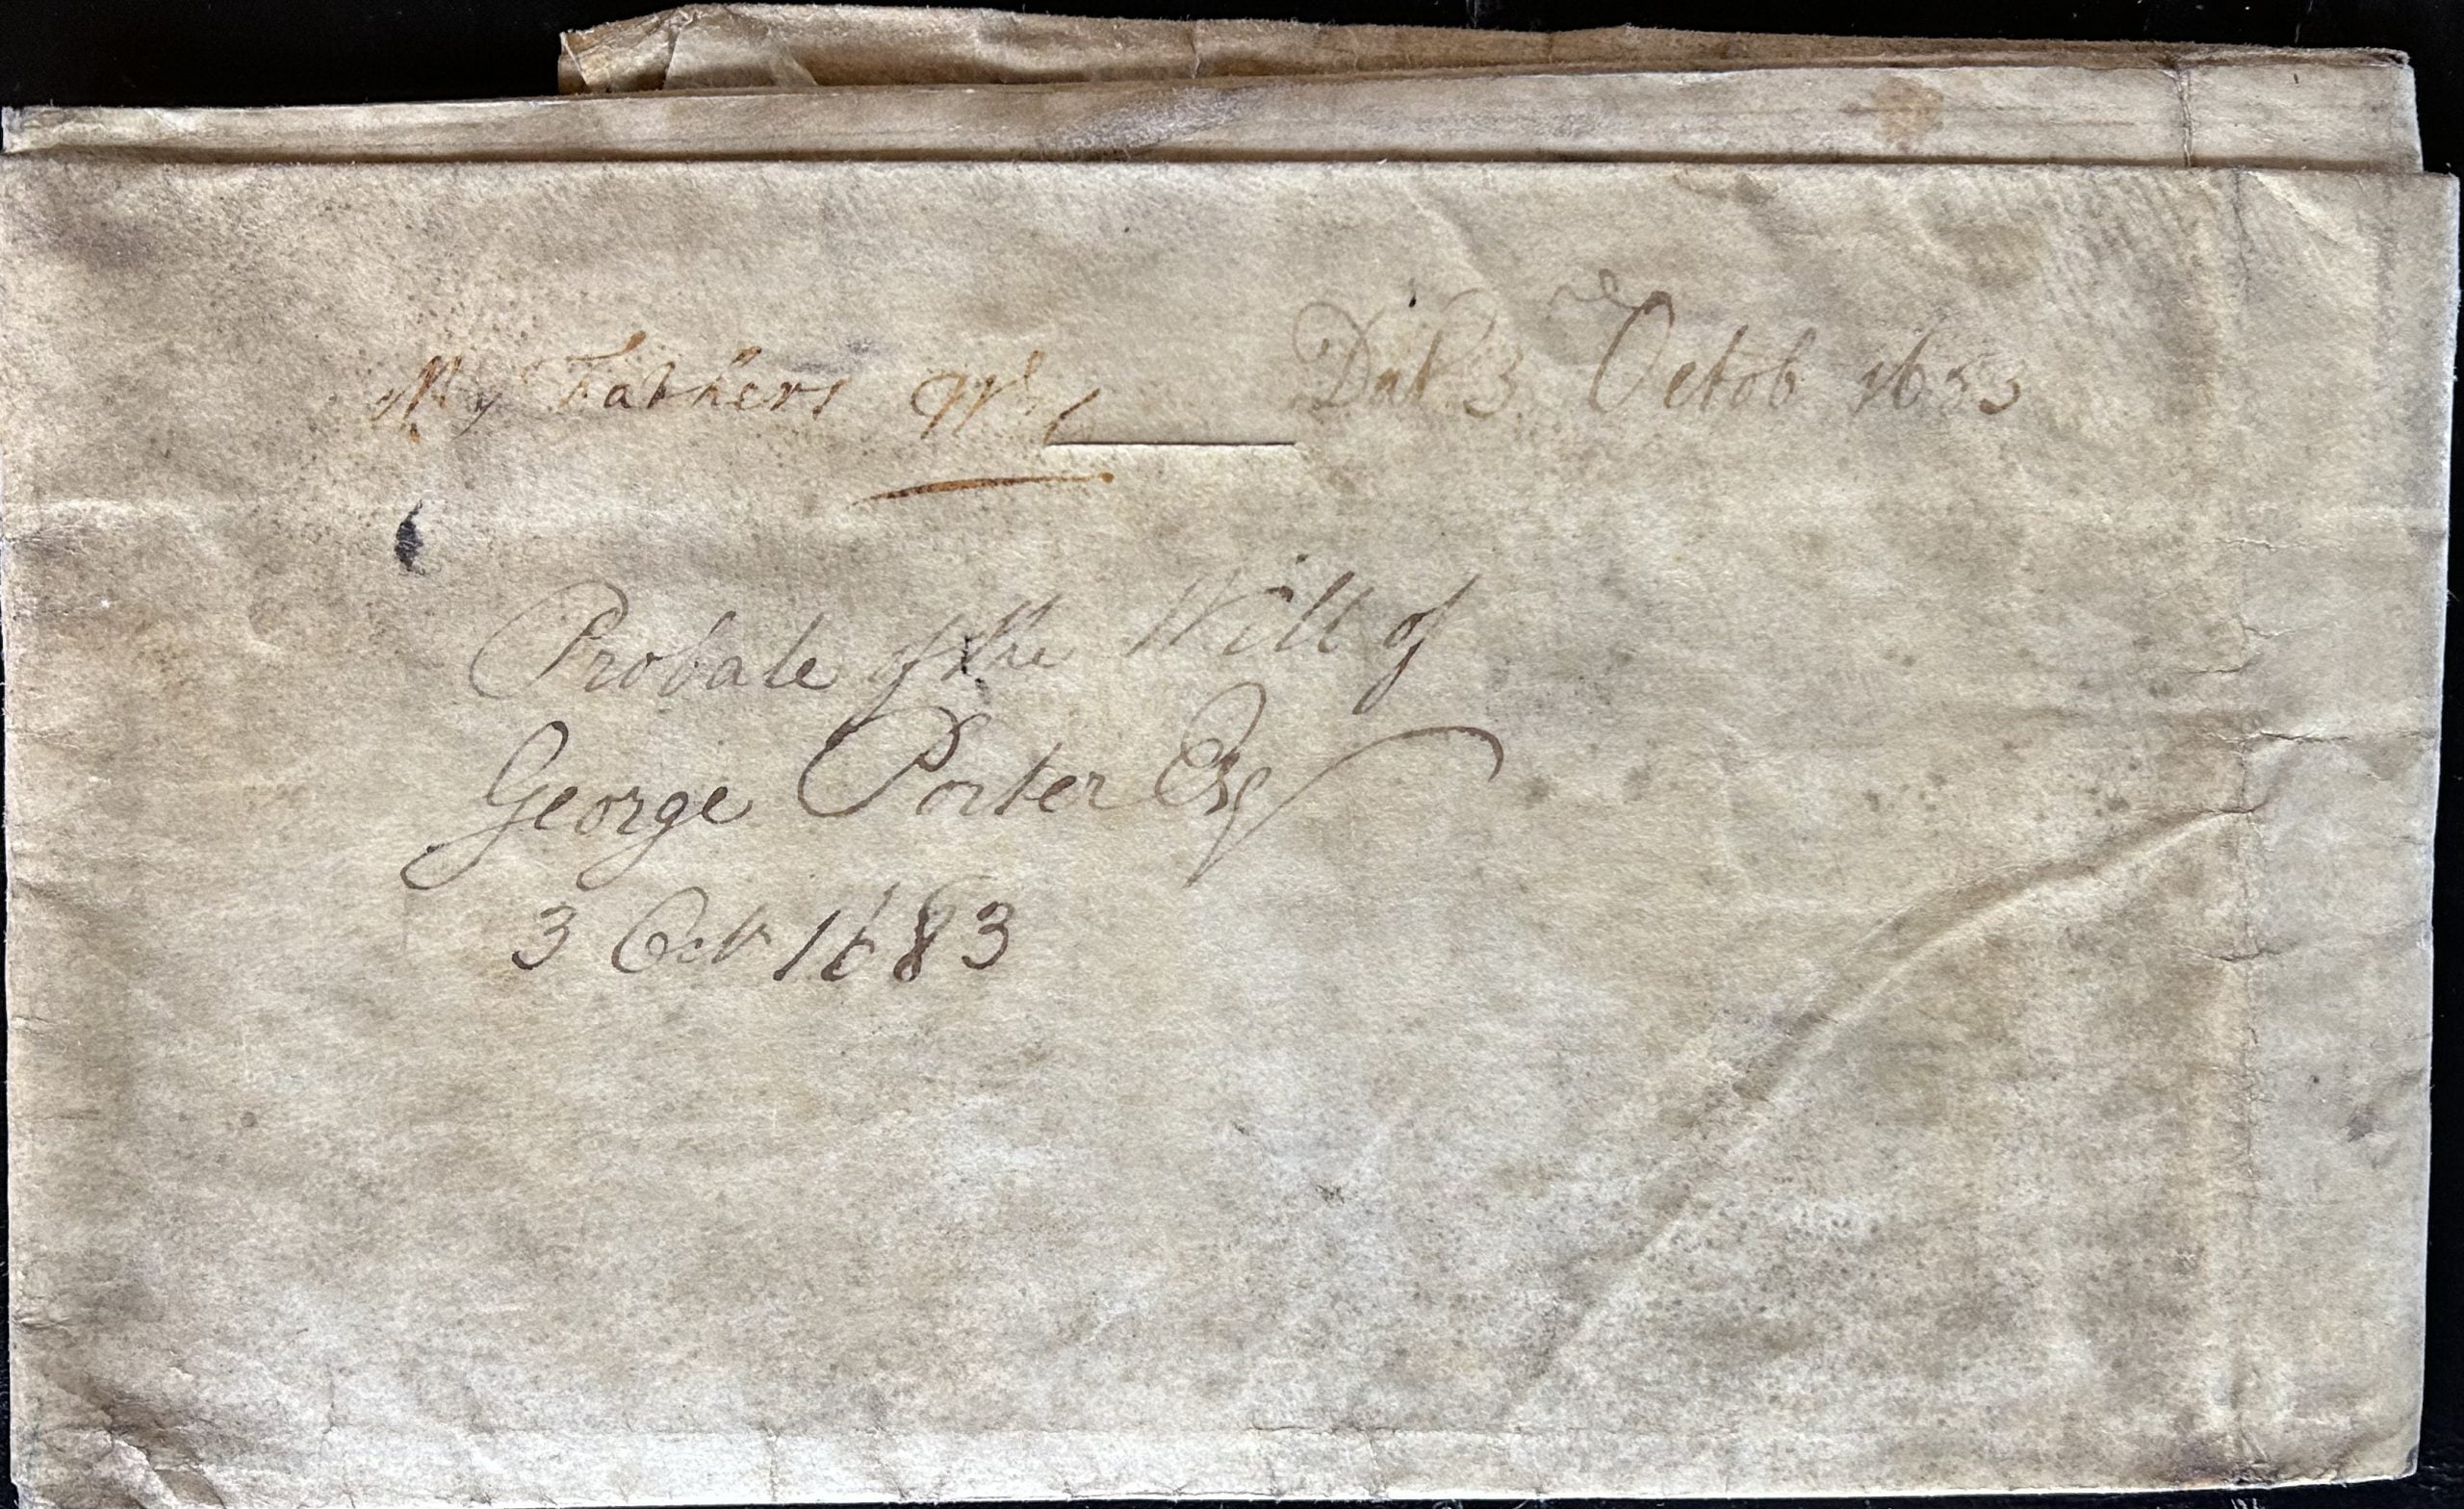 My Fathers Will Dat 3 Octob 1683
Probate of the Will of
George Porter Esq
3 Octr 1683